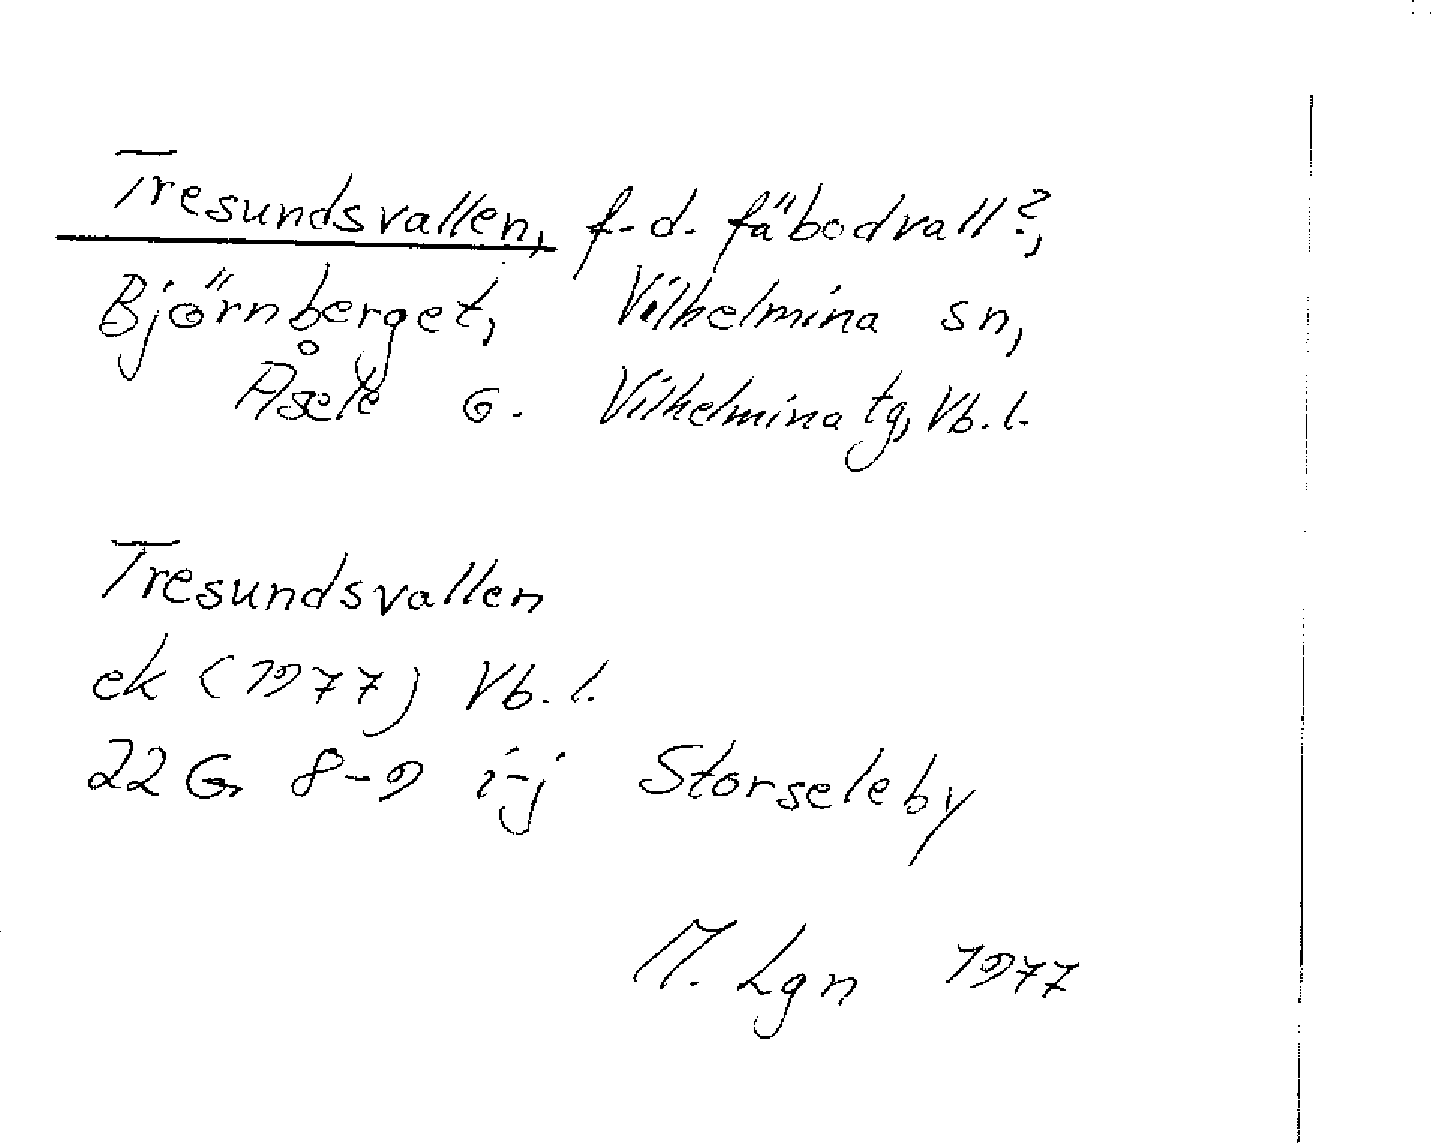 Tresundsvallen, f.d. fäbodvall?,
Björnberget, Vilhelmina sn,
Åsele G. Vilhelmina tg, Vb. l.
Tresundsvallen
ek (1977) Vb. l.
22 G 8-9 i-j Storseleby
M. Lgn 1977